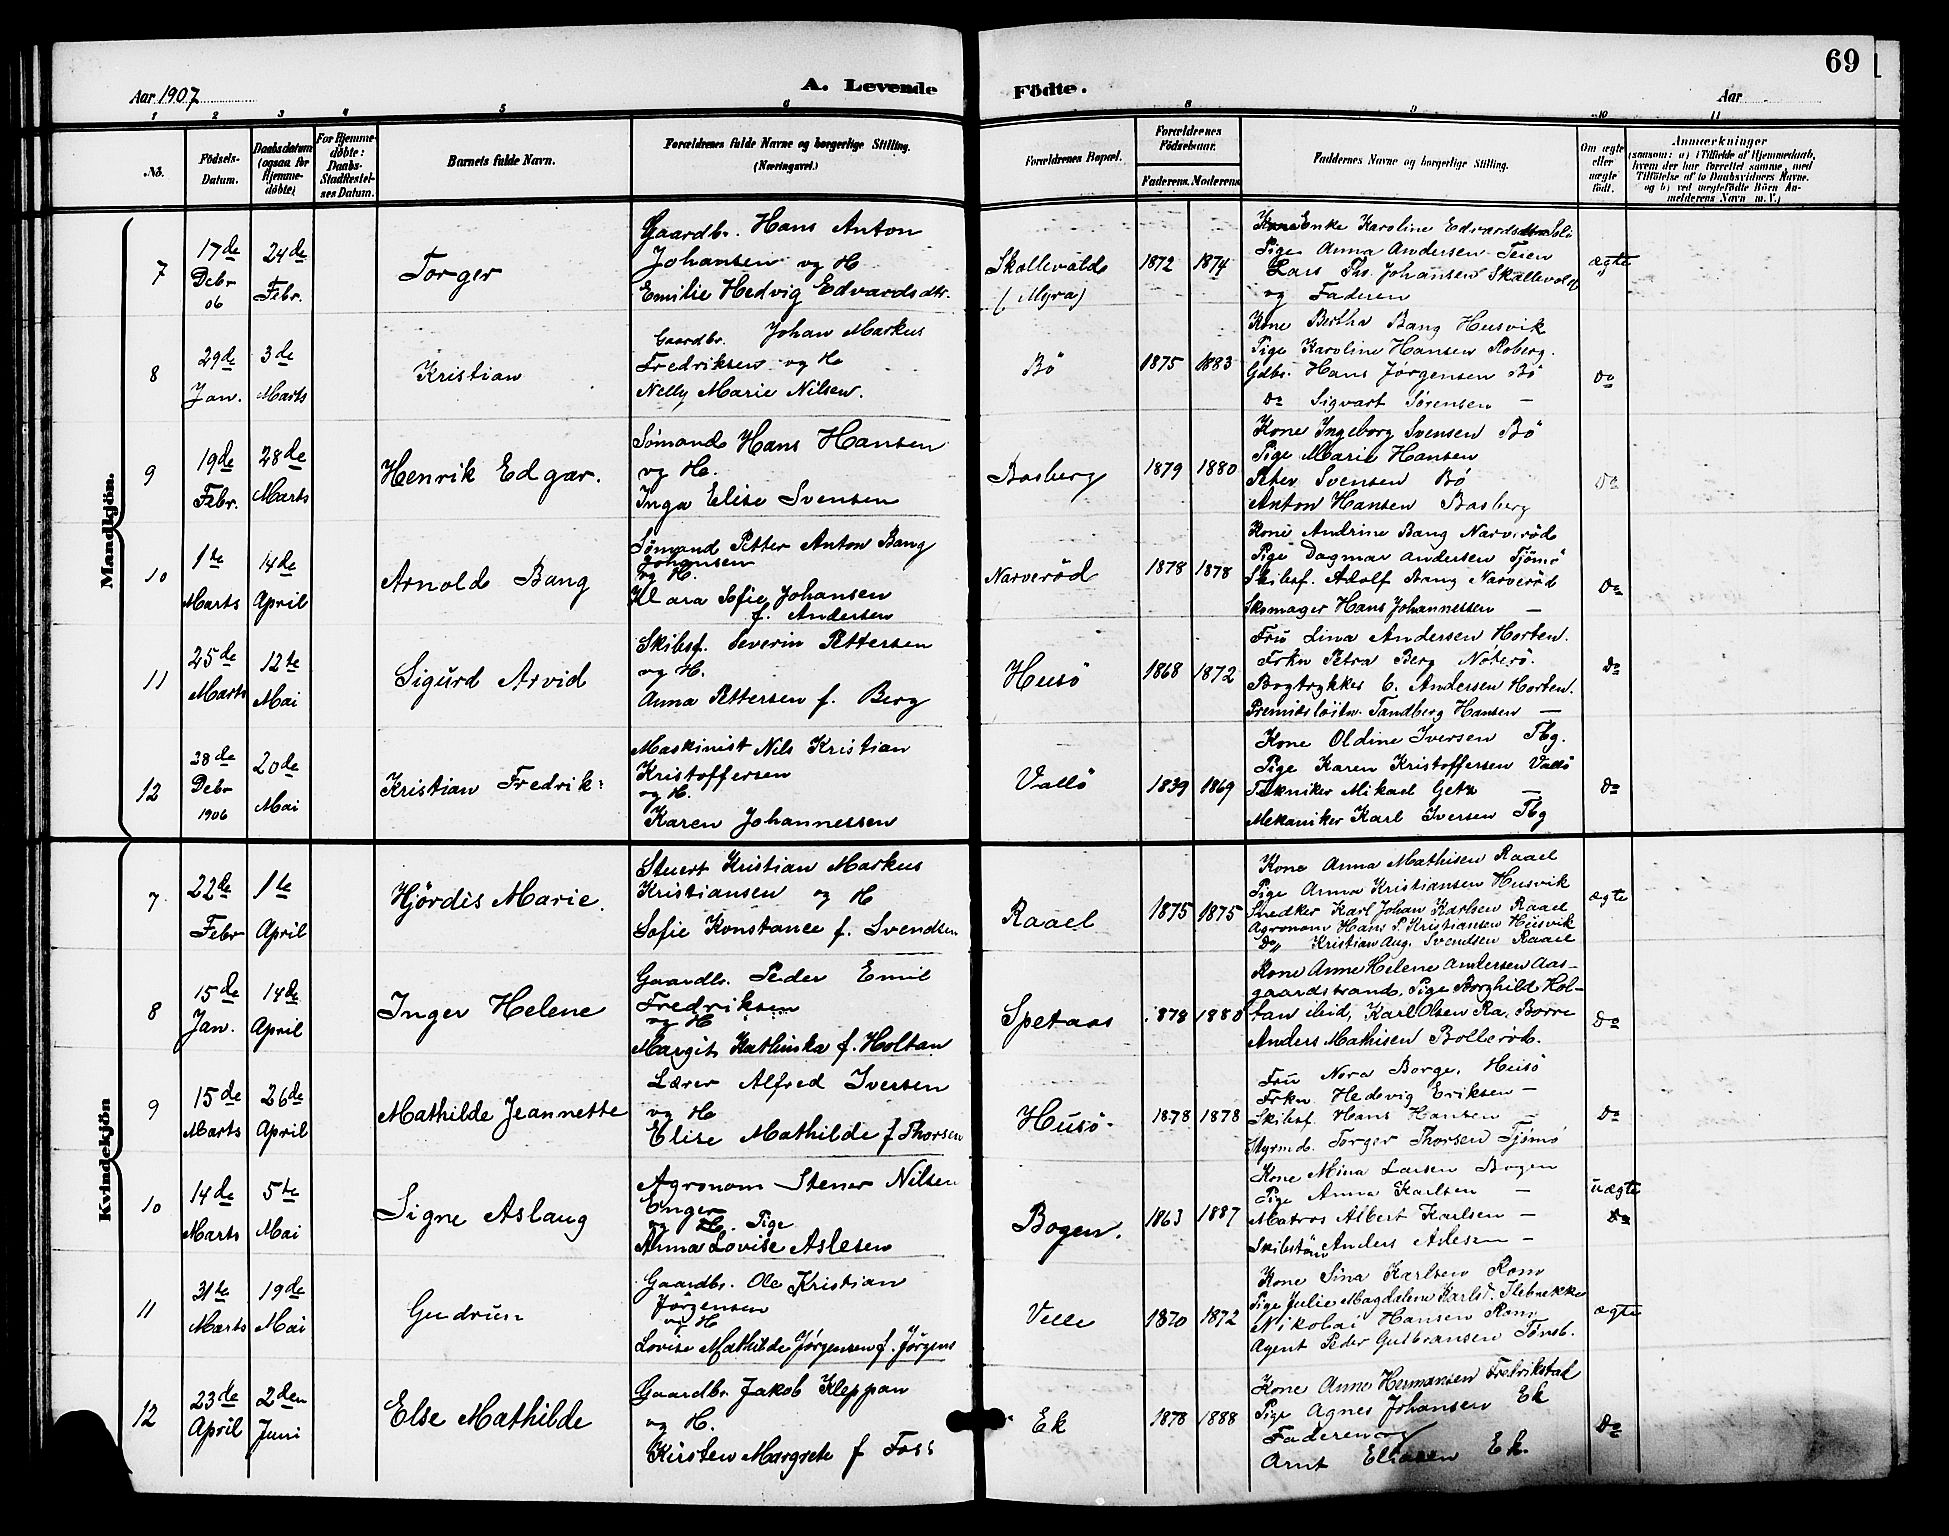 69
Aar 1907
A. Levende Födte.
Aar
1 2 3 4 5 6 8 9 10 11
No.
Födsels-Datum.
Daabsdatum (ogsaa for Hjemme-döbte)
For Hjemme-döbte: Daabs-Stadfæstelses Datum.
Barnets fulde Navn.
Forældrenes fulde Navne og borgerlige Stilling.
(Næringsvei.)
Forældrenes Bopæl.
Forældrenes Födselsaar.
Faderens. Moderens.
Faddernes Navne og borgerlige Stilling.
Om ægte eller uægte födt.
Anmærkninger
(saasom: a) i Tilfælde af Hjemmedaab, hvem der har forrettet samme, med Tilföielse af to Daabsvidners Navne, og b) ved uægtefödte Börn Anmelderens Navn m. V.)
Mandkjön.
7
17de Debr 06
24de Febr.
Torger
Gaardbr. Hans Anton
Johansen og H
Emilie Hedvig Edvardsdtr.
Skallevold
(Myra)
1872 1874
Enke Karoline Edvardsen
Pige Anna Andersen Teien
Lars Th. Johansen Skallevold
og Faderen
ægte
8
29de Jan.
3de Marts
Kristian
Gaardbr. Johan Markus
Fredriksen og H
Nelly Marie Nilsen.
Bö
1875 1883
Kone Bertha Bang Husvik
Pige Karoline Hansen Roberg.
Gdbr. Hans Jörgensen Bö
Do Sigvart Sörensen —
Do
9
19de Febr.
28de Marts
Henrik Edgar.
Sömand Hans Hansen
og H.
Inga Elise Svensen
Basberg
1879 1880
Kone Ingeborg Svensen Bö
Pige Marie Hansen
Peter Svensen Bö
Anton Hansen Basberg
Do
10
1te Marts
14de April
Arnold Bang
Sömand Petter Anton Bang
Johansen
og H.
Klara Sofie Johansen
f. Andersen
Narveröd
1878 1878
Kone Andrine Bang Narveröd
Pige Dagmar Andersen Tjömö
Skibsf. Adolf Bang Narveröd
Skomager Hans Johannessen —
Do
11
25de Marts
12te Mai
Sigurd Arvid
Skibsf. Severin Pettersen
og H.
Anna Pettersen f. Berg
Husö
1868 1872
Fru Lina Andersen Horten.
Frkn Petra Berg Nöterö.
Bogtrykker C. Andersen Horten.
Premierlöitn. Sandberg Hansen —
Do
12
28de Debr 1906
20de Mai
Kristian Fredrik
Maskinist Nils Kristian
Kristoffersen
og H.
Karen Johannessen
Vallö
1839 1869
Kone Oldine Iversen Tbg.
Pige Karen Kristoffersen Vallö
Tekniker Mikael Getz —
Mekaniker Karl Iversen Tbg
Do
Kvindekjön
7
22de Febr
1te April
Hjördis Marie.
Stuert Kristian Markus
Kristiansen og H
Sofie Konstance f. Svendsen
Raael
1875 1875
Kone Anna Mathisen Raael
Pige Anna Kristiansen Husvik
Snedker Karl Johan Karlsen Raael
Agronom Hans P. Kristiansen Husvik
Do Kristian Aug. Svendsen Raael
ægte
8
15de Jan.
14de April
Inger Helene
Gaardbr. Peder Emil
Fredriksen
og H
Margit Kathinka f. Holtan
Spetaas
1878 1880
Kone Anne Helene Andersen Aas-
gaardstrand, Pige Borghild Hol-
tan Eid, Karl Olsen Ra, Borre
Anders Mathisen Bolleröd.
Do
9
15de Marts
26de April
Mathilde Jeannette
Lærer Alfred Iversen
og H
Elise Mathilde f Thorsen
Husö
1878 1878
Fru Nora Borge, Husö
Frkn. Hedevig Eriksen —
Skibsf. Hans Hansen —
Styrmd. Torger Thorsen Tjömö
Do
10
14de Marts
5te Mai
Signe Aslaug
Agronom Stener Nilsen
Enger
og Pige
Anna Lovise Aslesen
Bogen.
1863 1887
Kone Mina Larsen Bogen
Pige Anna Karlsen —
Matros Albert Karlsen —
Skibstöm Anders Aslesen —
uægte
11
31te Marts
19de Mai
Gudrun
Gaardbr. Ole Kristian
Jörgensen
og H
Lovise Mathilde Jörgensen f. Jörgens
Velle
1870 1872
Kone Sina Karlsen Rom
Pige Julie Magdalene Karlsd. Ilebrekke
Nikolai Hansen Rom
Agent Peder Gulbransen Tönsb.
ægte
12
23de April
2den Juni
Else Mathilde
Gaardbr Jakob Kleppan
og H.
Kirsten Margrete f Foss
Ek
1878 1888
Kone Anne Hermansen Fredrikstad
Pige Agnes Johansen Ek
Faderen og
Arnt Eliasen Ek.
Do